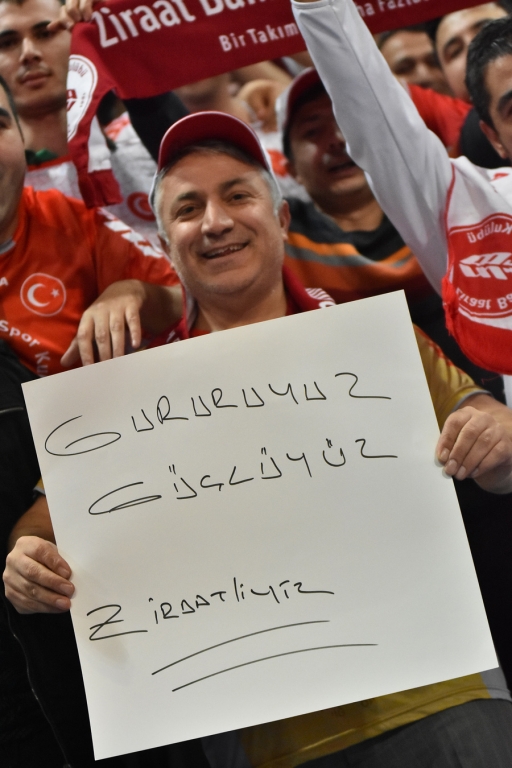 Ziraat Ban
Bir Takım
ha Fazlas
GURURUYUZ
GÜÇLÜYÜZ
ZİRAATLİYİZ
Spor Ku
Kulübü